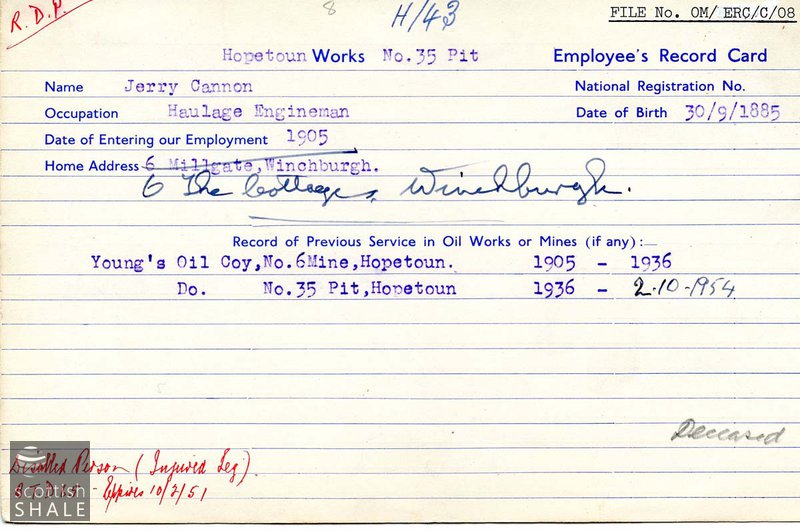 R.D.P.
8
H/43
FILE No. OM/ERC/C/08
Hopetoun Works No.35 Pit Employee's Record Card
Name Jerry Cannon National Registration No.
Occupation Haulage Engineman Date of Birth 30/9/1885
Date of Entering our Employment 1905
Home Address 6 Millgate,Winchburgh.
6 The Cottages, Winchburgh.
Record of Previous Service in Oil Works or Mines (if any):—
Young's Oil Coy,No.6Mine,Hopetoun. 1905 - 1936
Do. No.35 Pit,Hopetoun 1936 - 2-10-1954
Deceased
Disabled Person (Injured Leg)
Expires 10/2/51
scottish
SHALE